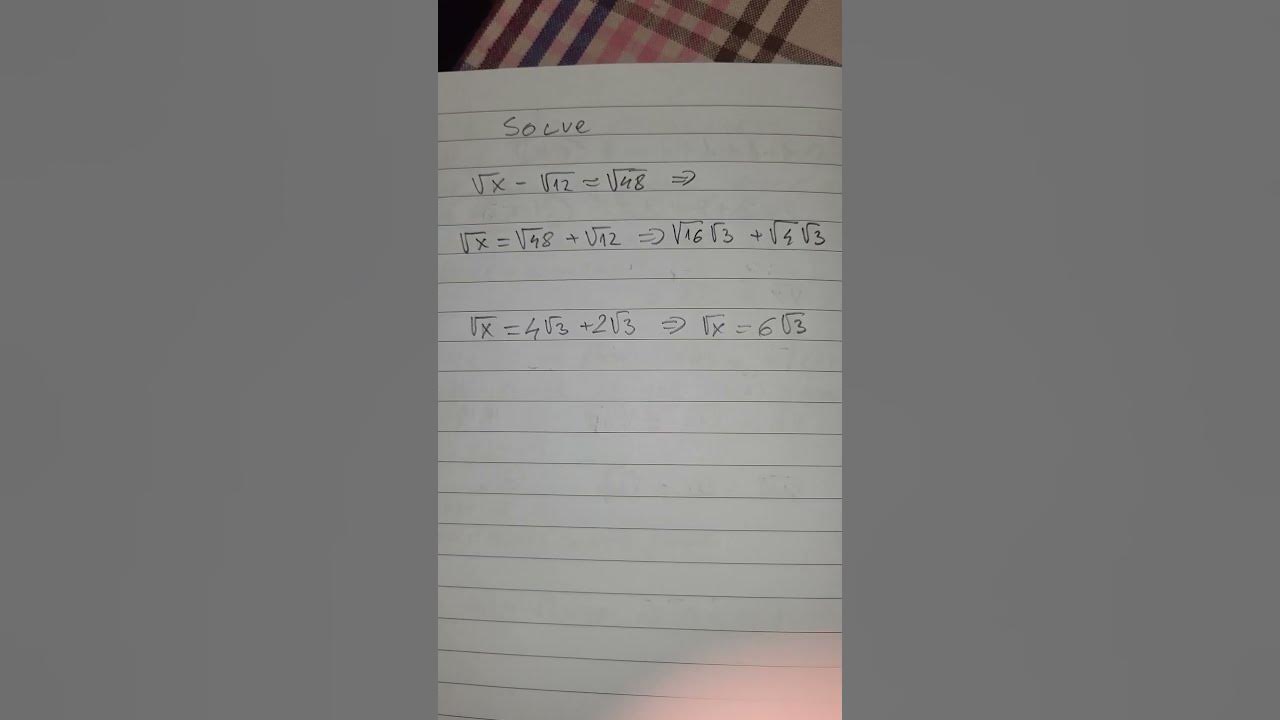 Solve
√x - √12 = √48 ⇒
√x = √48 + √12 ⇒ √16 √3 + √4 √3
√x = 4√3 + 2√3 ⇒ √x = 6√3